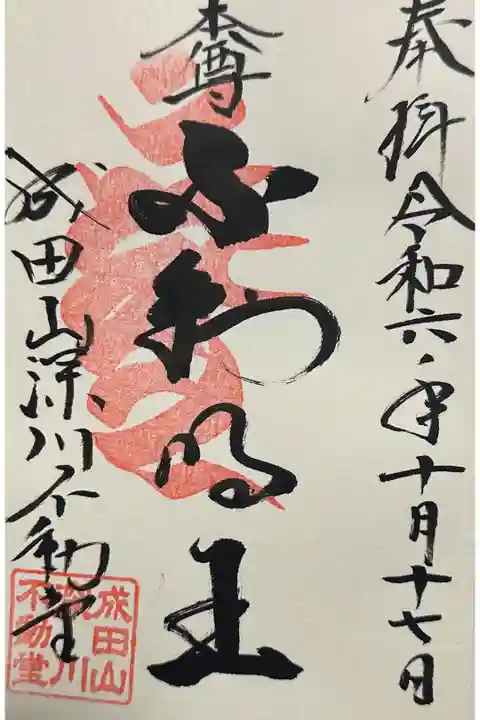 奉拝 令和六年十月十七日
本尊 不動明王
成田山深川不動堂
成田山
深川
不動堂